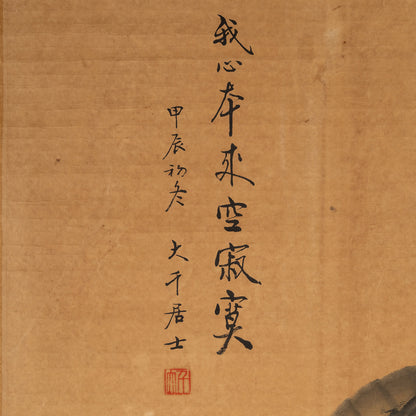 我心本來空寂寞
甲辰初冬 大千居士